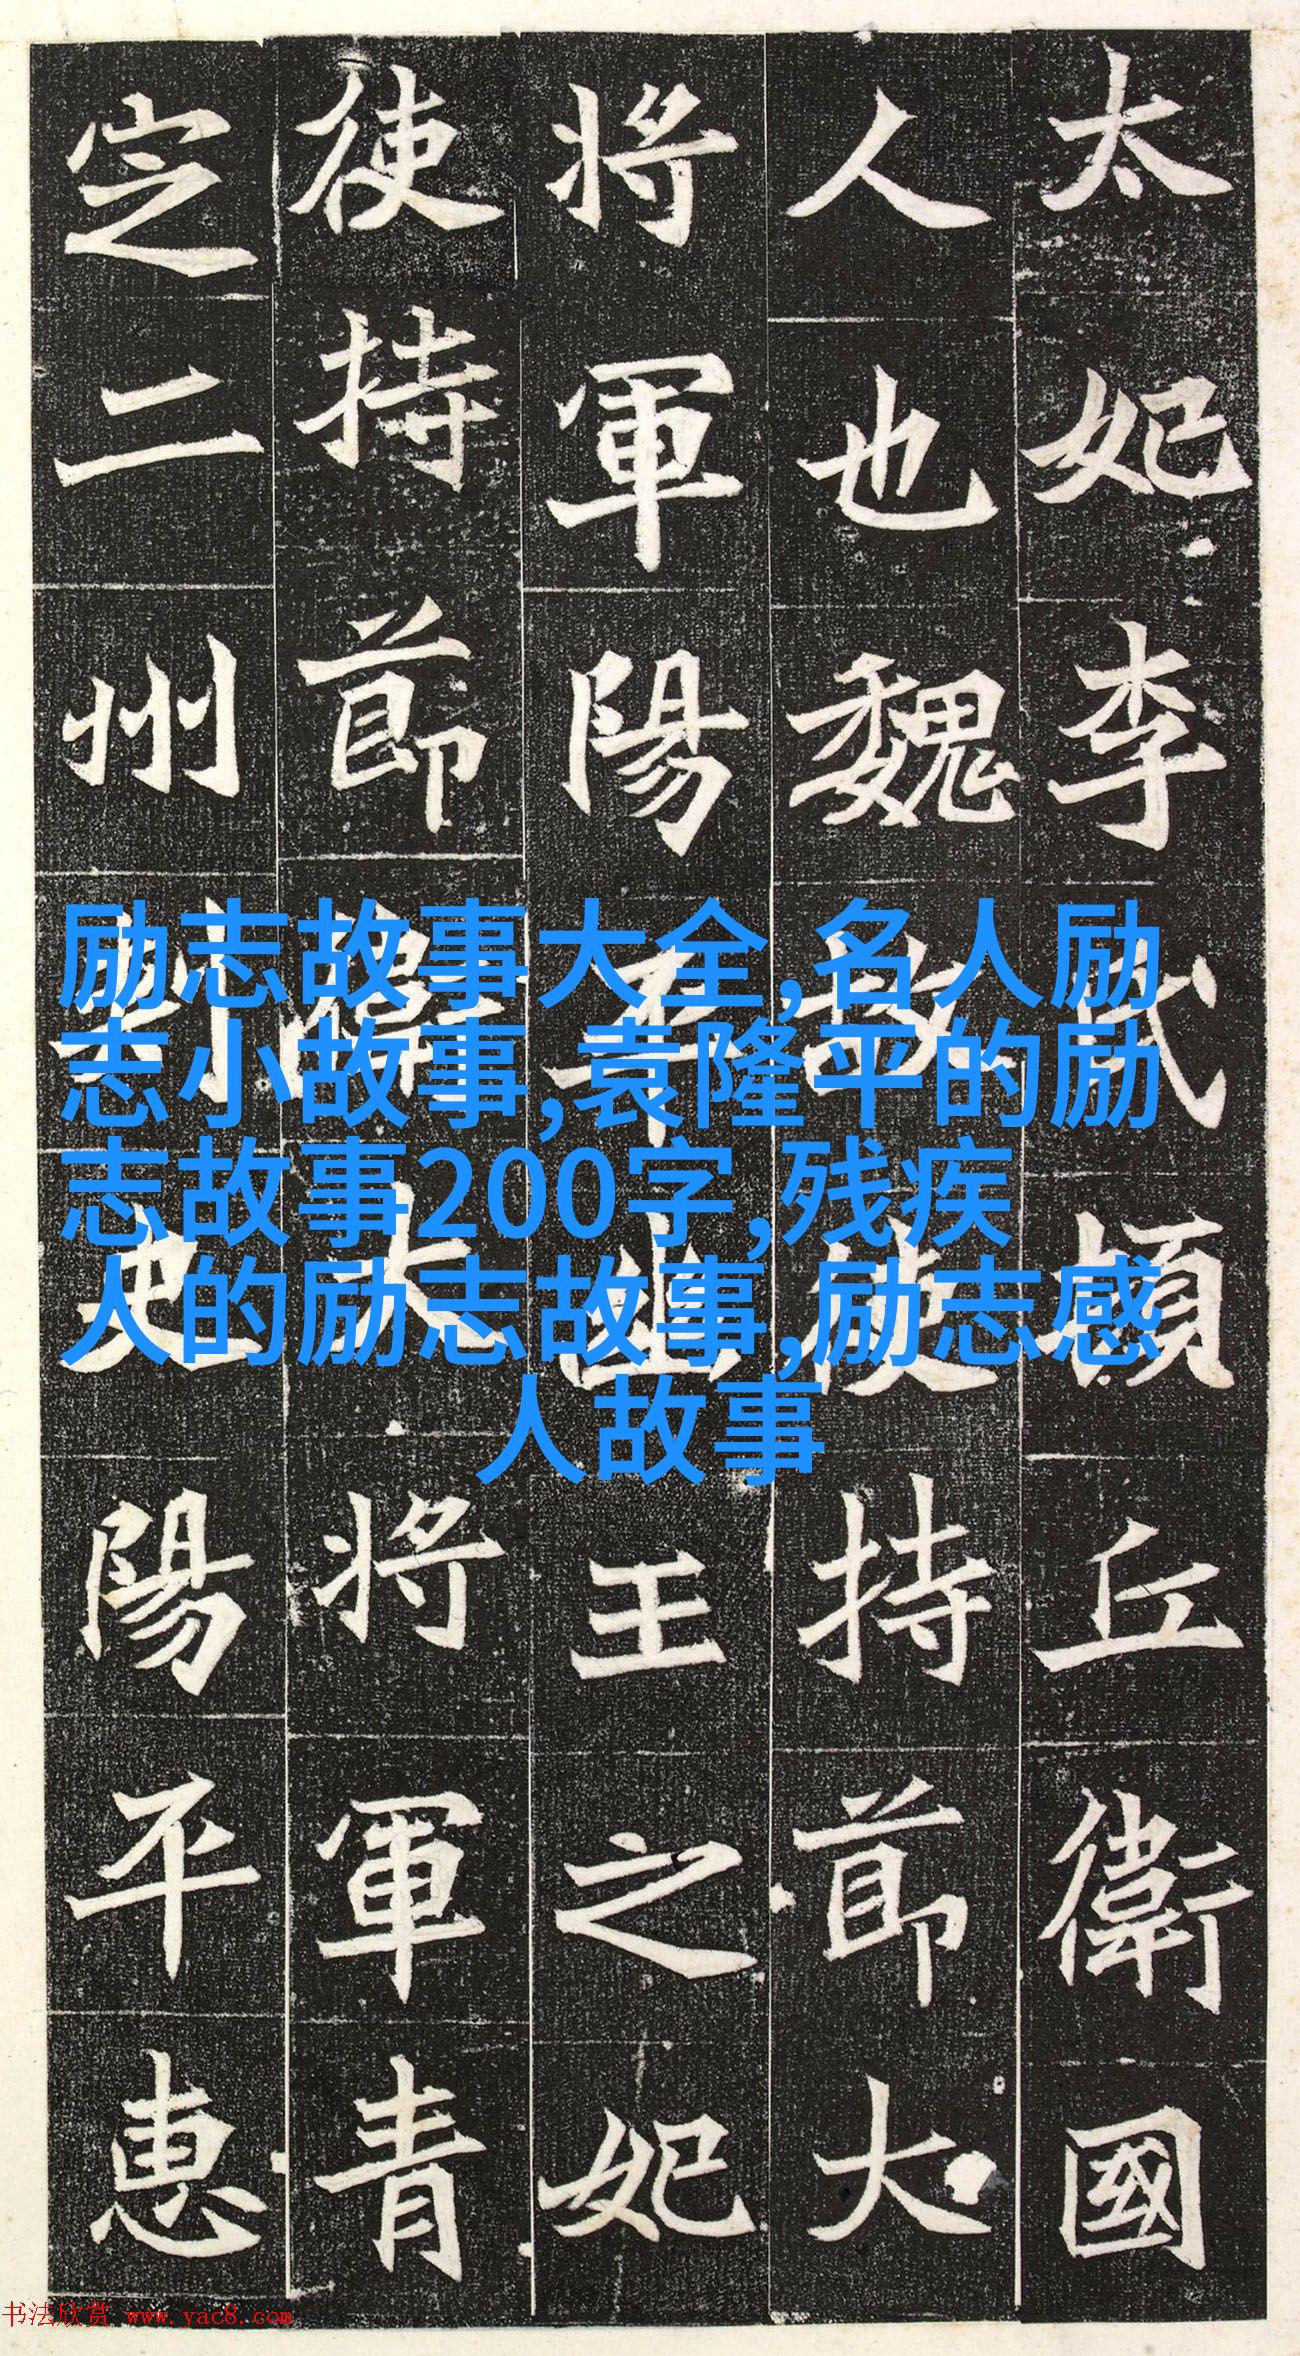 太妃李氏頓丘衛國
人也魏故使持節大
將軍陽平幽王之妃
使持節衛大將軍青
定二州刾史陽平惠
励志故事大全,名人励
志小故事,袁隆平的励
志故事200字,残疾
人的励志故事,励志感
人故事
书法欣赏 www.yac8.com